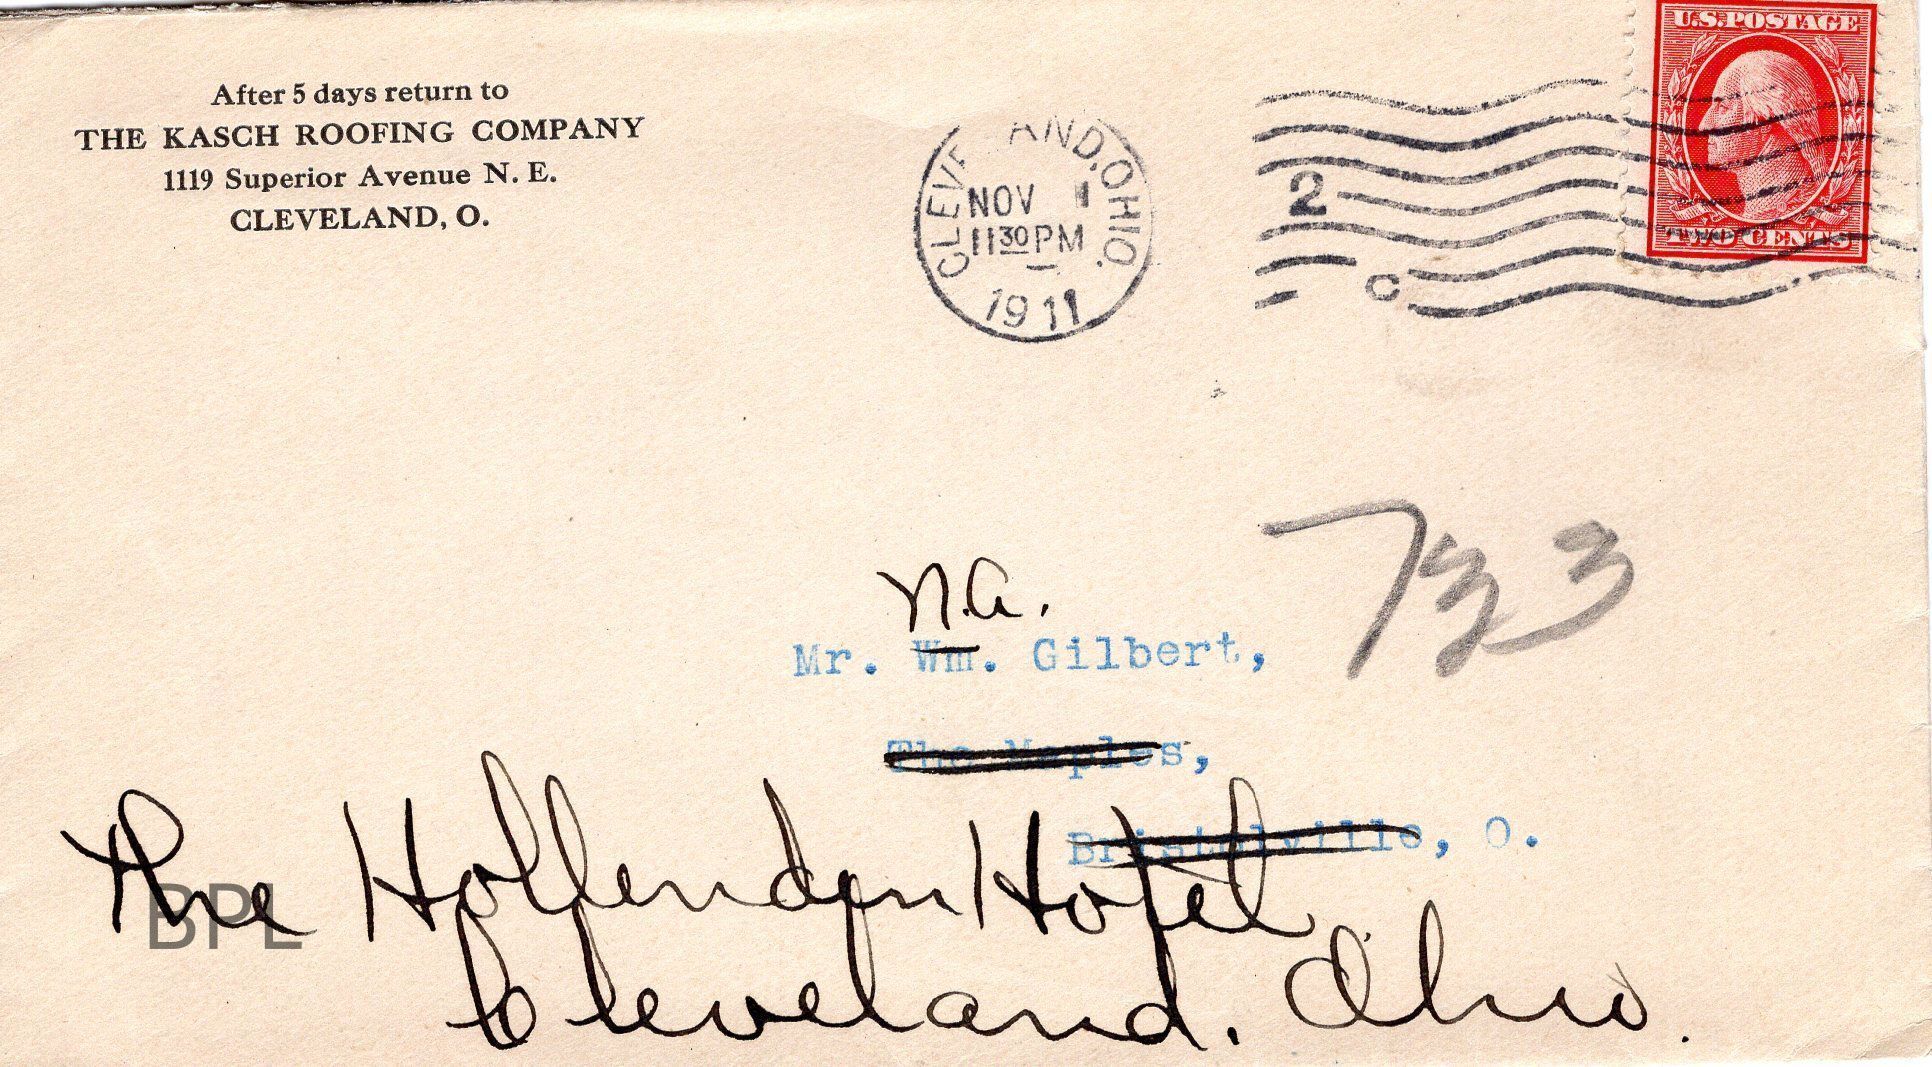 After 5 days return to
THE KASCH ROOFING COMPANY
1119 Superior Avenue N. E.
CLEVELAND, O.
CLEVELAND, OHIO.
NOV 1
11 30 PM
1911
2
C
U.S. POSTAGE
TWO CENTS
N.A.
Mr. Wm. Gilbert,
733
The Maples,
Bristolville, O.
The Hollenden Hotel
Cleveland. Ohio.
BPL